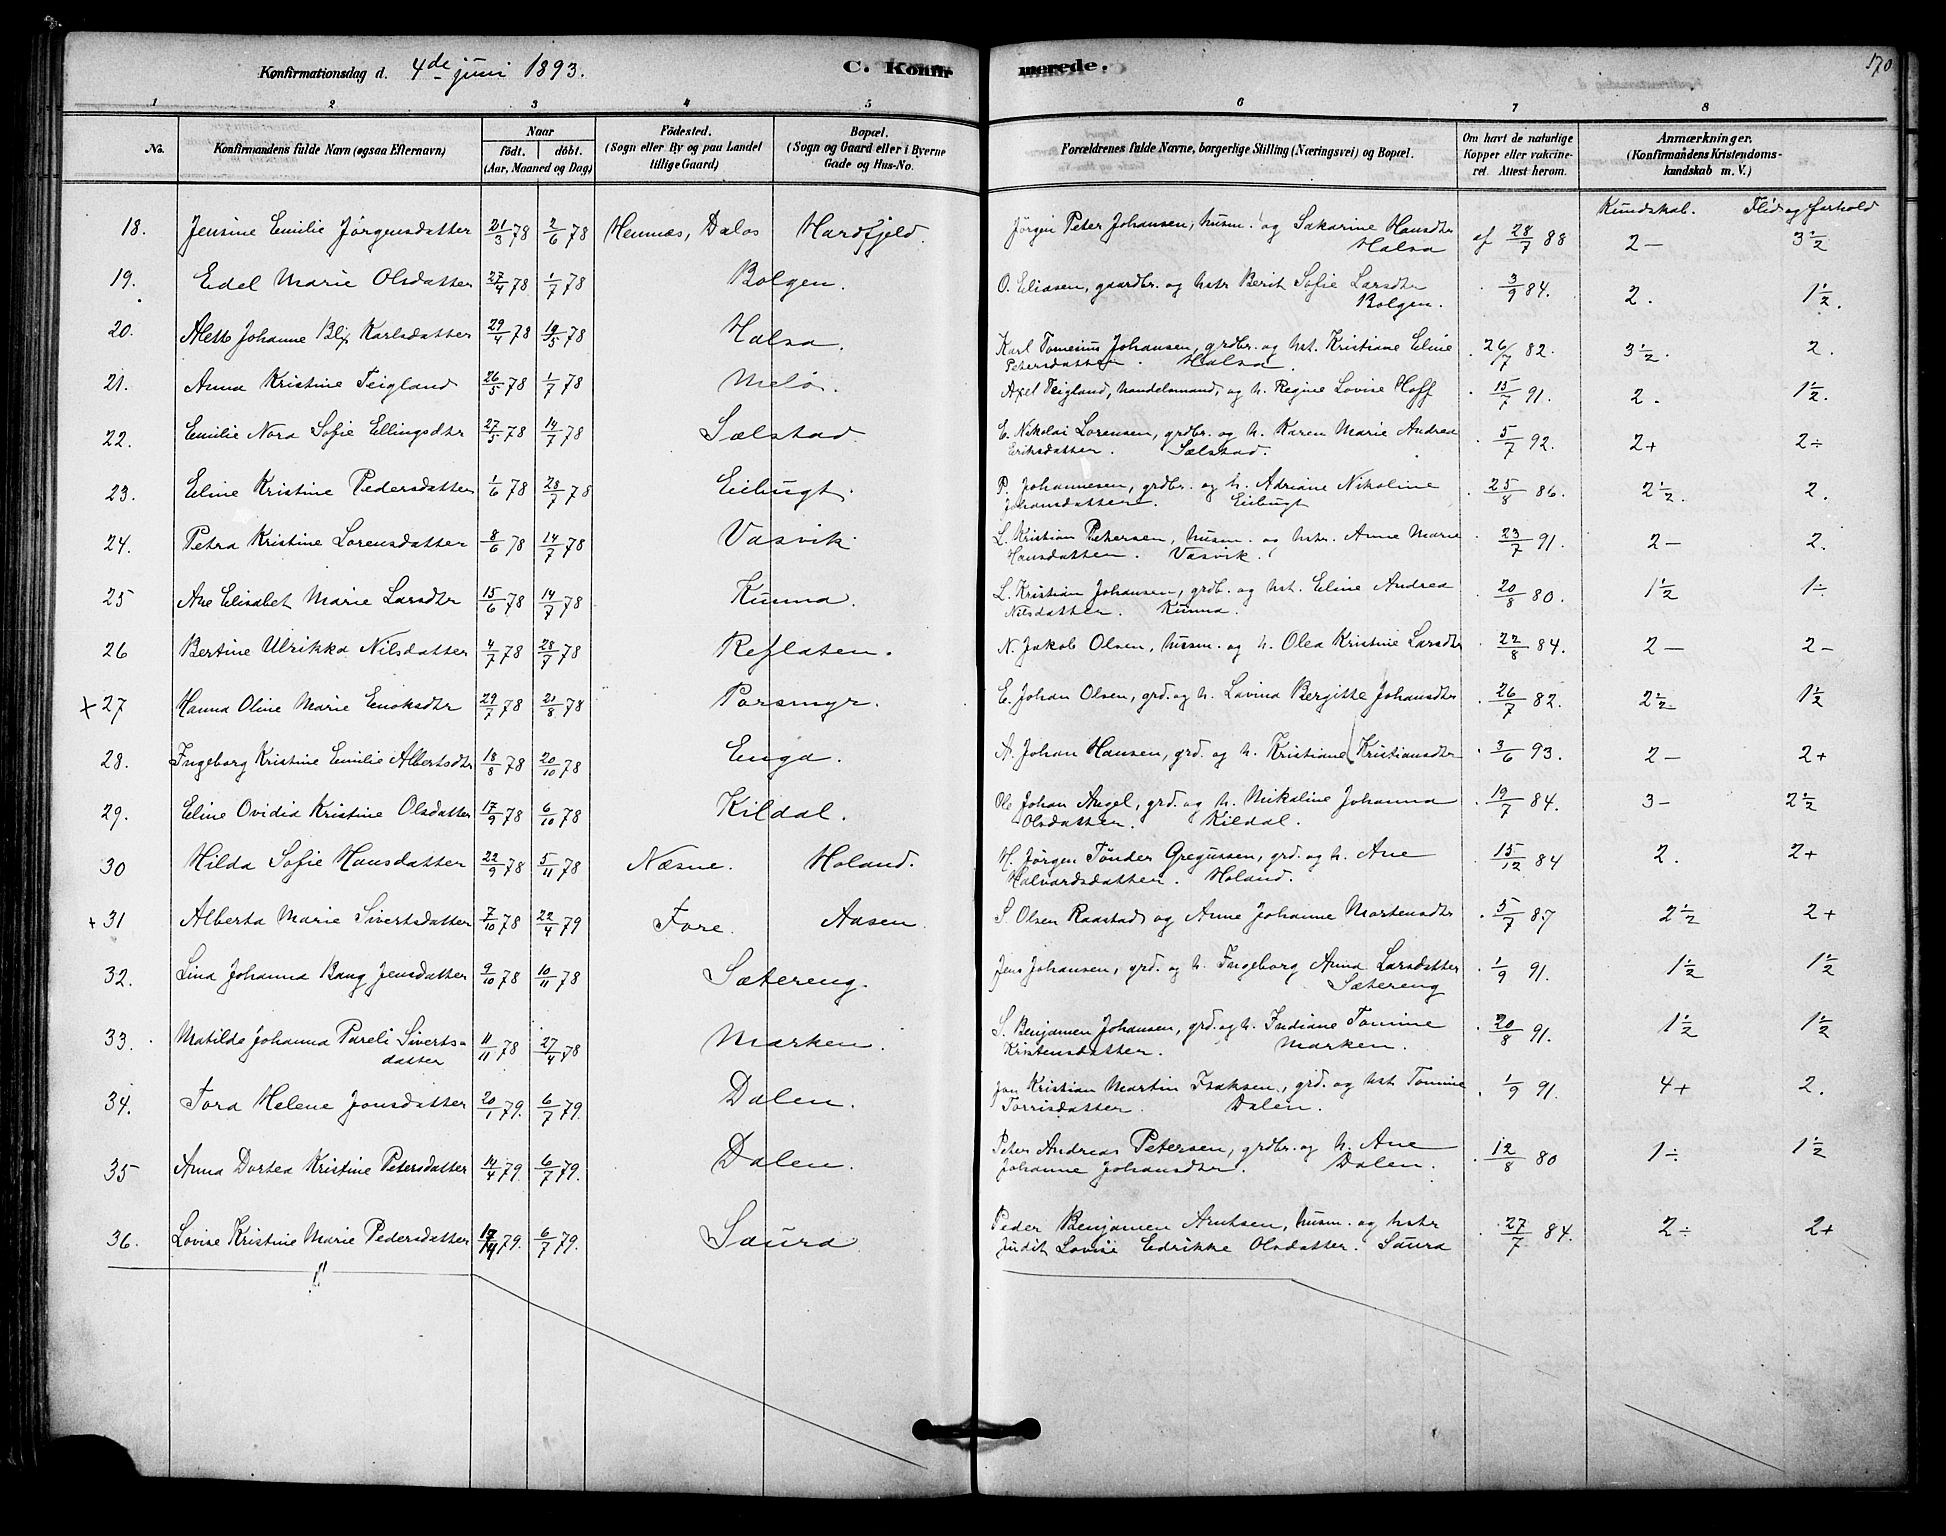 Konfirmationsdag d. 4de juni 1893. C. Konfirmerede. 170
1 2 3 4 5 6 7 8
No. Konfirmandens fulde Navn (ogsaa Efternavn) Naar født. døbt. (Aar, Maaned og Dag) Fødested. (Sogn eller By og paa Landet tillige Gaard) Bopæl. (Sogn og Gaard eller i Byerne Gade og Hus-No. Forældrenes fulde Navne, borgerlige Stilling (Næringsvei) og Bopæl. Om havt de naturlige Kopper eller vakcineret. Attest herom. Anmærkninger. (Konfirmandens Kristendomskundskab m. V.)
Kundskab. Flid og forhold
18. Jensine Emilie Jørgensdatter 21/3 78 2/6 78 Hemnæs, Dalos Hardfjeld. Jørgen Peter Johansen, husm. og Sakarine Hansdtr Halsa af 28/7 88 2 — 3 1/2
19. Edel Marie Olsdatter 27/4 78 1/7 78 Bolgen. O. Eliasen, gaardbr. og hstr Berit Sofie Larsdtr Bolgen. 3/9 84. 2. 1 1/2.
20. Aleth Johanne Blix Karlsdatter 29/4 78 19/5 78 Halsa. Karl Tomesius Johansen, grdbr. og hst. Kristiane Eline Petersdatter. Halsa. 26/7 82. 3 1/2. 2.
21. Anna Kristine Teigland 26/5 78 1/7 78 Melø. Axel Teigland, handelsmand, og h. Regine Lovise Hoff 15/7 91. 2. 1 1/2.
22. Emilie Nora Sofie Ellingsdtr 27/5 78 14/7 78 Sælstad. E. Nikolai Lorensen, grdbr. og h. Karen Marie Andrea Eriksdatter. Sælstad. 5/7 92. 2+ 2÷
23. Eline Kristine Pedersdatter 1/6 78 28/7 78 Eibugt. P. Johannesen, grdbr. og h. Adriane Nikoline Johansdatter. Eibugt 25/8 86. 2 1/2. 2.
24. Petra Kristine Lorensdatter 8/6 78 14/7 78 Vasvik L. Kristian Petersen, husm. og hstr. Anne Marie Hansdatter. Vasvik. 23/7 91. 2 — 2.
25 Ane Elisabet Marie Larsdtr 15/6 78 14/7 78 Kunna. L. Kristian Johansen, grdb. og hst. Eline Andrea Nilsdatter. Kunna. 20/8 80. 1 1/2 1÷
26 Bertine Ulrikka Nilsdatter 4/7 78 28/7 78 Reflaten. N. Jakob Olsen, husm. og h. Olea Kristine Larsdtr 22/8 84. 2 — 2 —
x 27 Hanna Oline Marie Enoksdtr 29/7 78 21/8 78 Porsmyr. E. Johan Olsen, grd. og h. Lavina Bergitte Johansdtr 26/7 82. 2 1/2 1 1/2
28. Ingeborg Kristine Emilie Albertsdtr 18/8 78 20/10 78 Enga. A. Johan Hansen, grd. og h. Kristiane Kristiansdtr 3/6 93. 2 — 2+
29. Eline Ovidia Kristine Olsdatter 17/9 78 6/10 78 Kildal. Ole Johan Angel, grd. og h. Mikaline Johanna Olsdatter. Kildal. 19/7 84. 3 — 2 1/2
30 Hilda Sofie Hansdatter 22/9 78 5/11 78 Næsne. Holand. H. Jørgen Tønder Gregussen, grd. og h. Ane Halvardsdatter. Holand. 15/12 84 2. 2+
+ 31 Alberta Marie Sivertsdatter 7/10 78 22/4 79 Fore. Aasen S Olsen Raastad og Anne Johanne Mortensdtr 5/7 87 2 1/2 2+
32. Lina Johanna Bang Jensdatter 9/10 78 10/11 78 Sætereng. Jens Johansen, grd. og h. Ingeborg Anna Larsdatter Sætereng 1/9 91. 1 1/2 1 1/2
33. Matilde Johanna Pareli Sivertsdatter 11/11 78 27/4 78 Marken. S. Benjamen Johansen, grd. og h. Indiane Tomine Kristensdatter. Marken. 20/8 91. 1 1/2 1 1/2
34. Tora Helene Jonsdatter 20/1 79. 6/7 79. Dalen. Jon Kristian Martin Isaksen, grd. og hst. Tomine Torrisdatter. Dalen. 1/9 91. 4+ 2.
35 Anna Dortea Kristine Petersdatter 14/4 79. 6/7 79. Dalen. Peter Andreas Petersen, grdbr. og h. Ane Johanne Johansdtr. Dalen. 12/8 80 1÷ 1 1/2
36. Lovise Kristine Marie Pedersdatter 79. 6/7 79. Saura Peder Benjamen Arntsen, husm. og hstr Judit Lovise Edrikke Olsdatter. Saura 27/7 84. 2÷ 2+